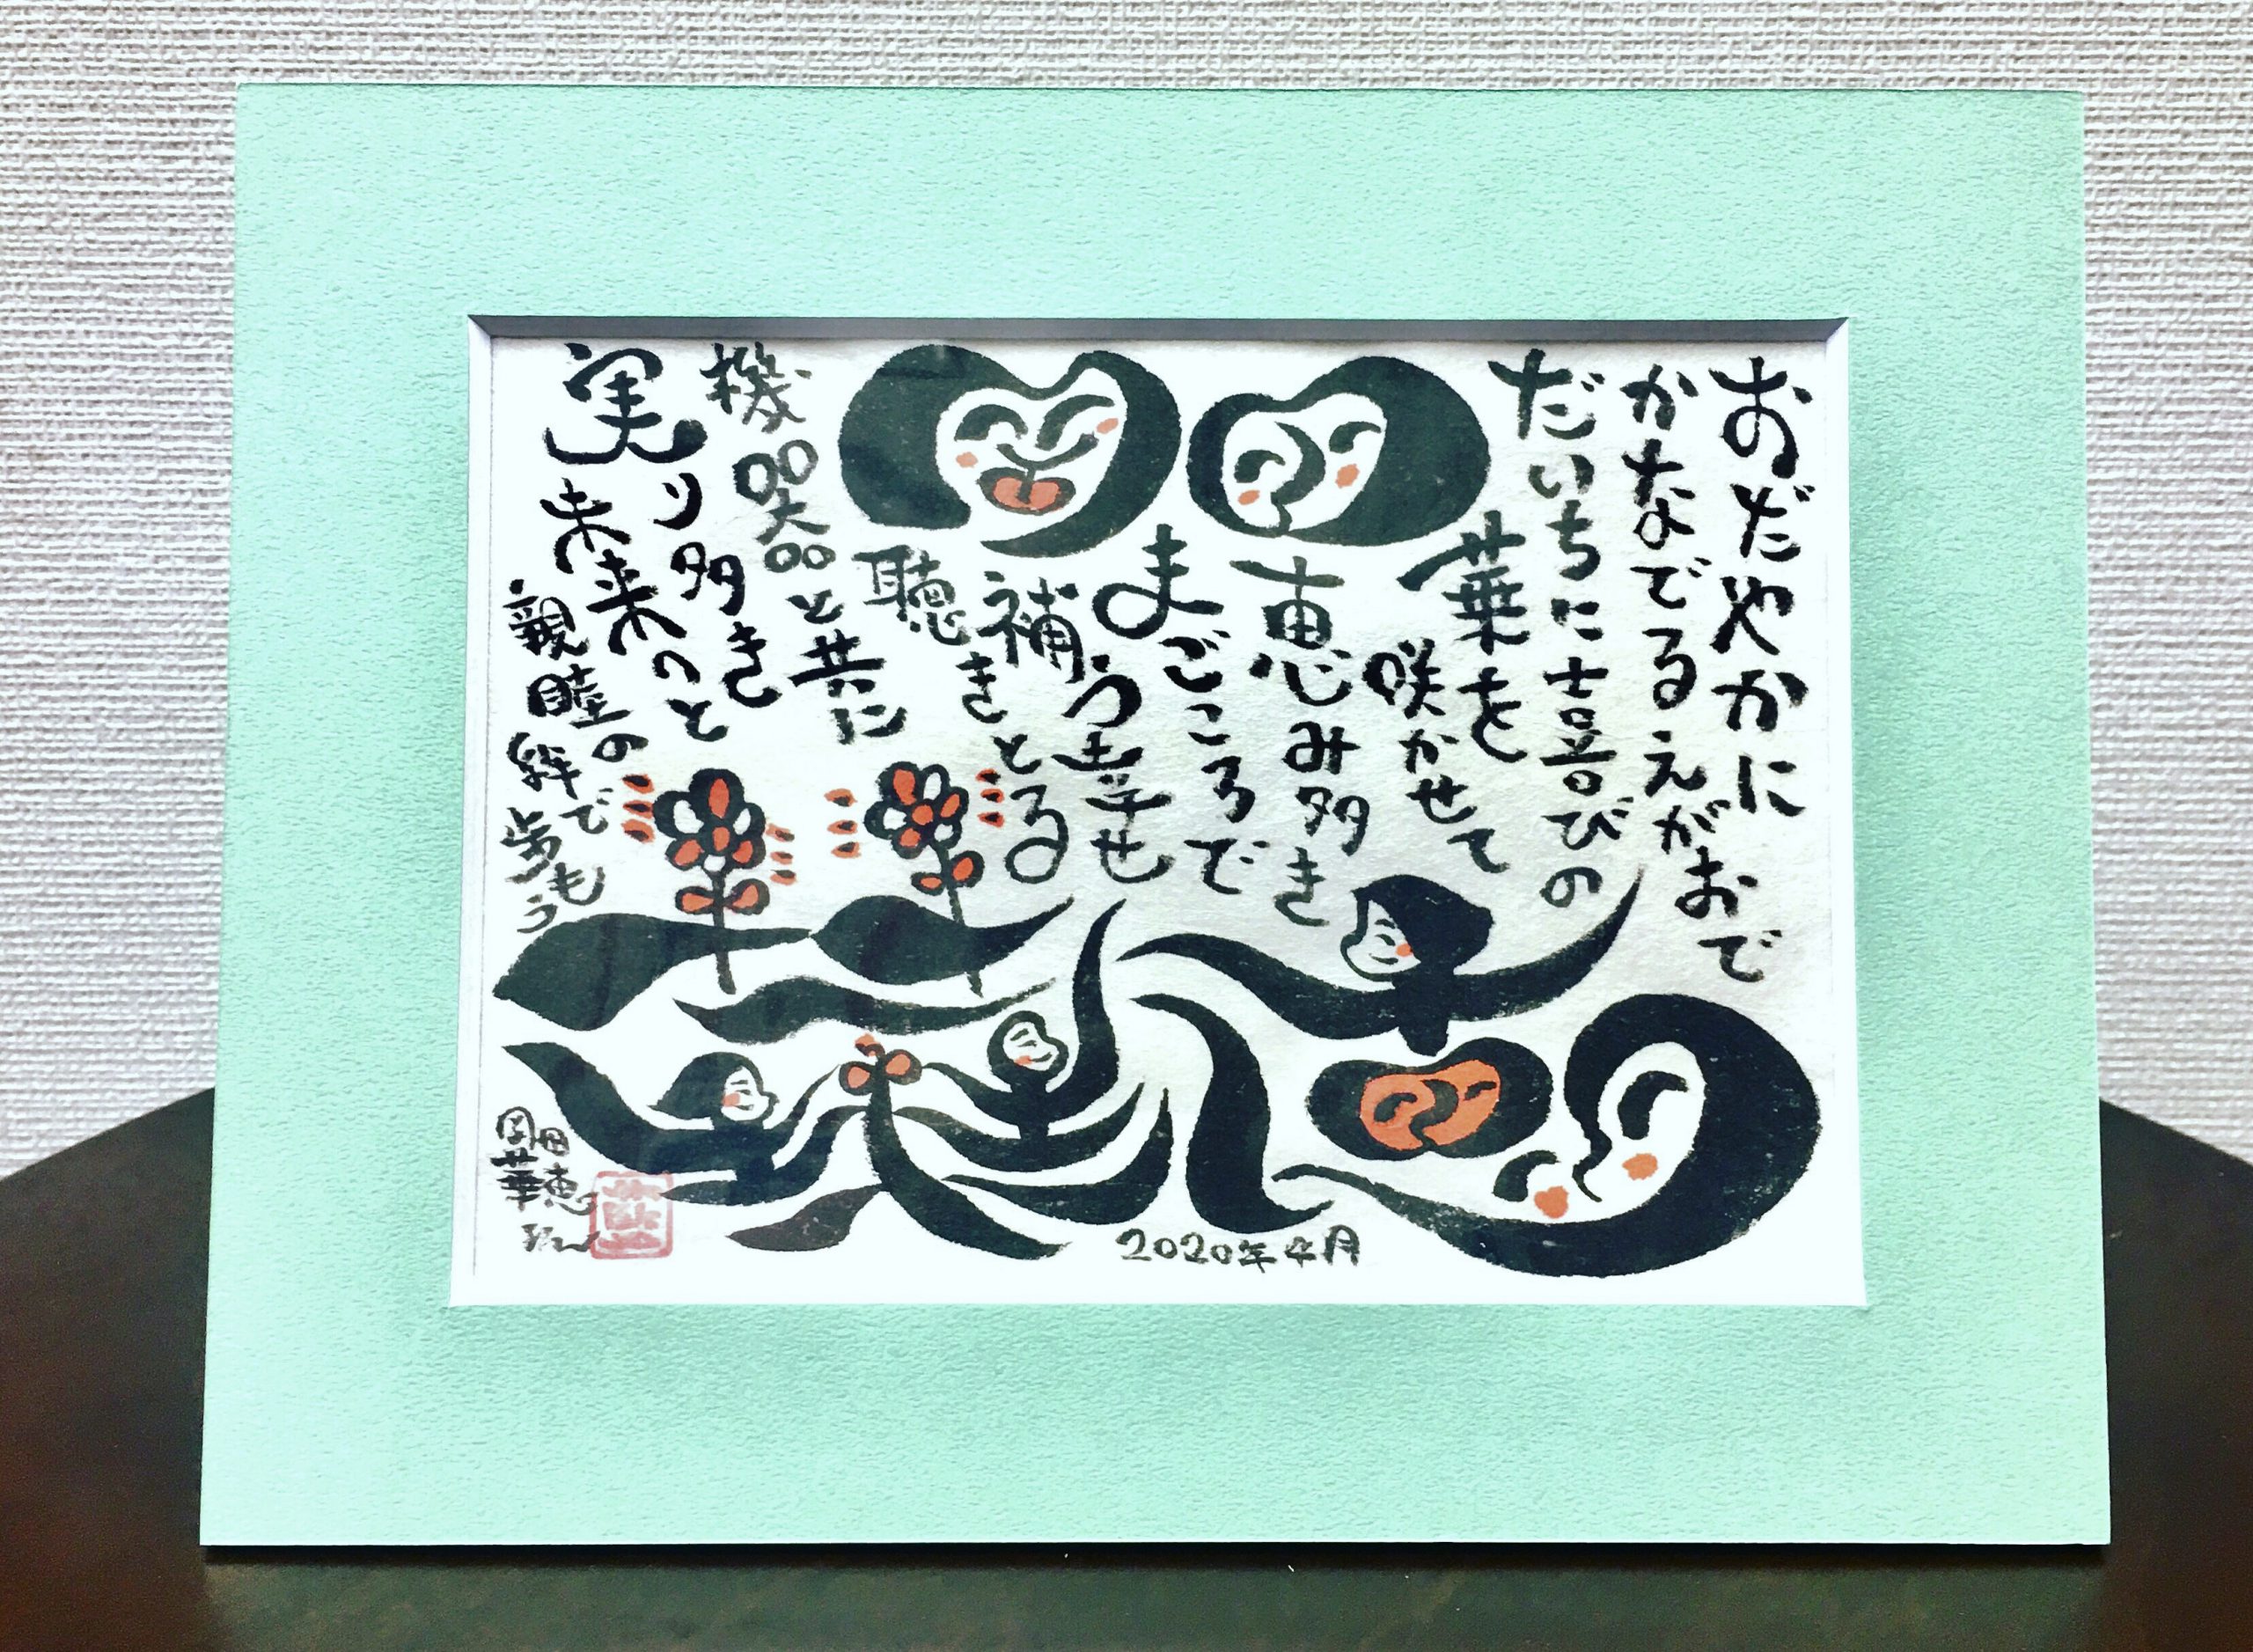 おだやかに
かなでるえがおで
だいちに喜びの
華を
咲かせて
恵み多き
まごころで
補う幸せ
聴きとる
機器と共に
実り多き
未来へと
親睦の
絆で
歩もう
岡田
華恵
2020年4月